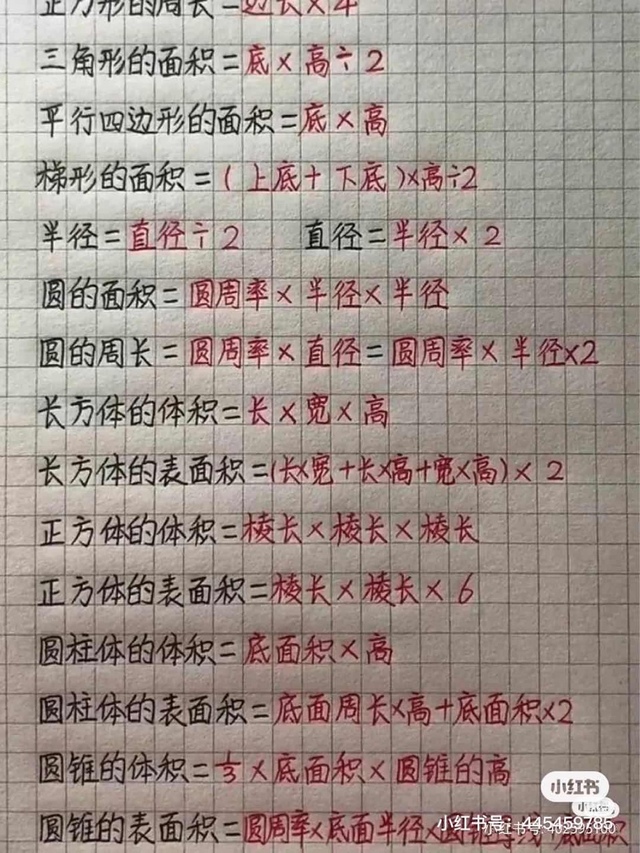 正方形的周长=边长×4
三角形的面积=底×高÷2
平行四边形的面积=底×高
梯形的面积=(上底+下底)×高÷2
半径=直径÷2 直径=半径×2
圆的面积=圆周率×半径×半径
圆的周长=圆周率×直径=圆周率×半径×2
长方体的体积=长×宽×高
长方体的表面积=(长×宽+长×高+宽×高)×2
正方体的体积=棱长×棱长×棱长
正方体的表面积=棱长×棱长×6
圆柱体的体积=底面积×高
圆柱体的表面积=底面周长×高+底面积×2
圆锥的体积=1/3×底面积×圆锥的高
小红书
小红书
圆锥的表面积=圆周率×底面半径×
小红书号:445459785
小红书号:402596160